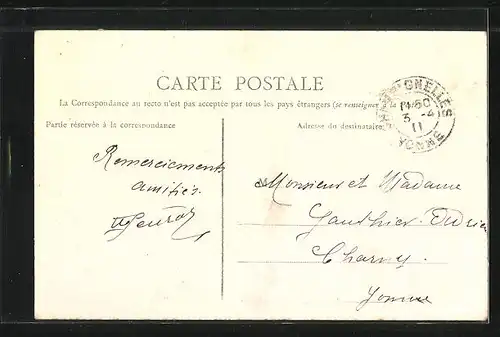 CARTE POSTALE
La Correspondance au recto n'est pas acceptée par tous les pays étrangers (se renseigner à la
Partie réservée à la correspondance
Adresse du destinataire
14 50
3 -4
11
YONNE
Remerciements
amitiés.
Monsieur et Madame
Gauthier
Charny
Yonne